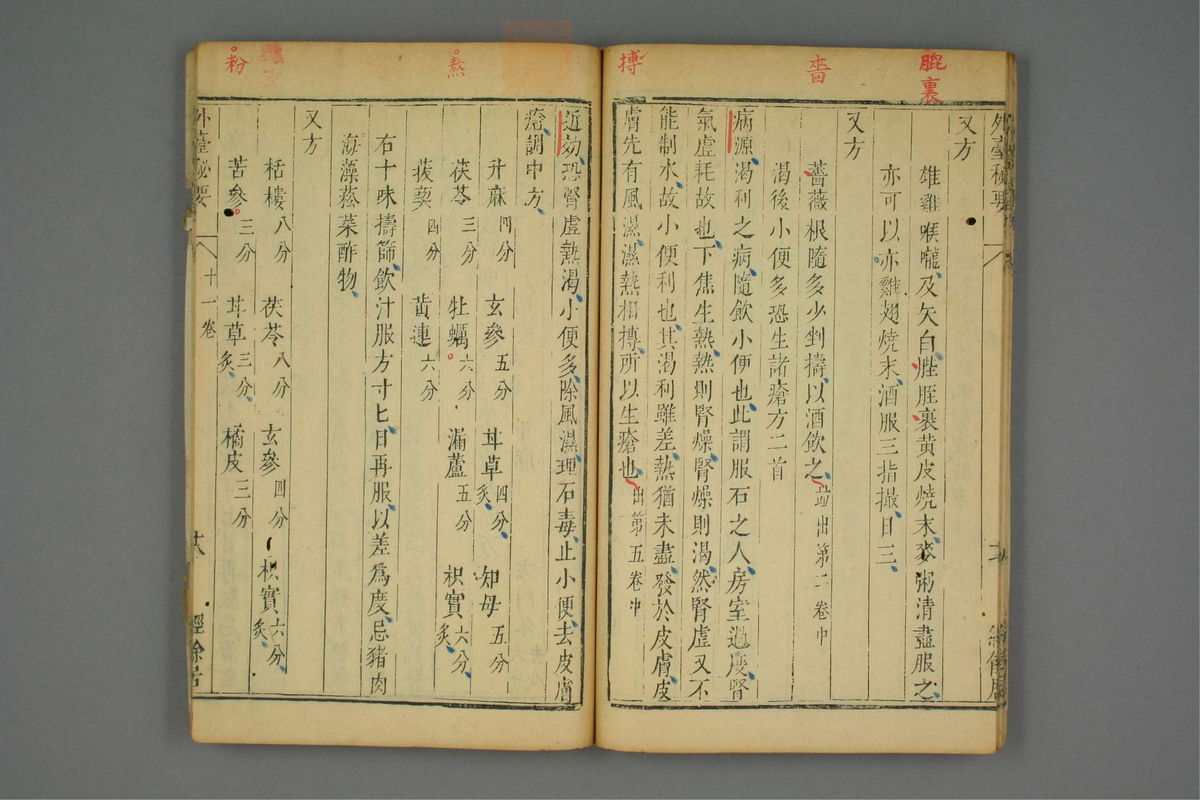 膍裏
嗇
搏
外臺秘要
又方
雄雞喉嚨及矢白膍胵裹黃皮燒末麥粥清盡服之
亦可以赤雞翅燒末酒服三指撮日三
又方
薔薇根隨多少剉擣以酒飲之 並出第二卷中
渴後小便多恐生諸瘡方二首
病源渴利之病隨飲小便也此謂服石之人房室過度腎
氣虛耗故也下焦生熱熱則腎燥腎燥則渴然腎虛又不
能制水故小便利也其渴利雖差熱猶未盡發於皮膚皮
膚先有風濕濕熱相搏所以生瘡也 出第五卷中
熬
粉
近効恐腎虛熱渴小便多除風濕理石毒止小便去皮膚
瘡調中方
升麻四分 玄參五分 茸草四分炙 知母五分
茯苓三分 牡蠣六分 漏蘆五分 枳實六分炙
菝葜四分 黃連六分
右十味擣篩飲汁服方寸匕日再服以差爲度忌豬肉
海藻菘菜酢物
又方
栝樓八分 茯苓八分 玄參四分 枳實六分炙
苦參三分 茸草三分炙 橘皮三分
外臺秘要 十一卷 十八 經餘居